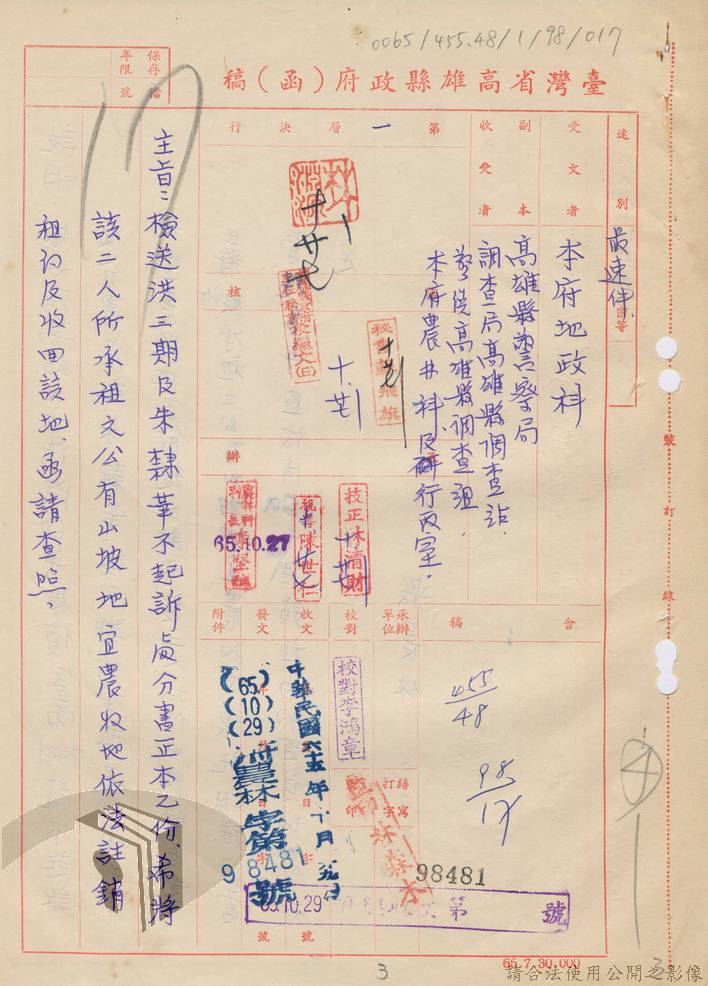 0065/455.48/1/98/017
臺灣省高雄縣政府（函）稿
保存年限
檔號
速別
最速件
受文者
本府地政科
副本收受者
高雄縣警察局
調查局高雄縣調查站
高雄縣調查組
本府農林科
第一層決行
核
十、廿
辦
技正林清財
視導陳世仁
農林科
65.10.27
會
稿
承辦單位
校對
收文
發文
附件
校對李鴻章
繕寫
打字
監印
中華民國六十五年十月
(65)
(10)
(29)
府豐林字第98481號
455/48
98481
65.10.29
第
號
主旨：檢送洪三期及朱隸華不起訴處分書正本乙份、希將
該二人所承租之公有山坡地宜農牧地依法註銷
租約及收回該地、函請查照。
裝訂線
65.7.30,000
3
請合法使用公開之影像